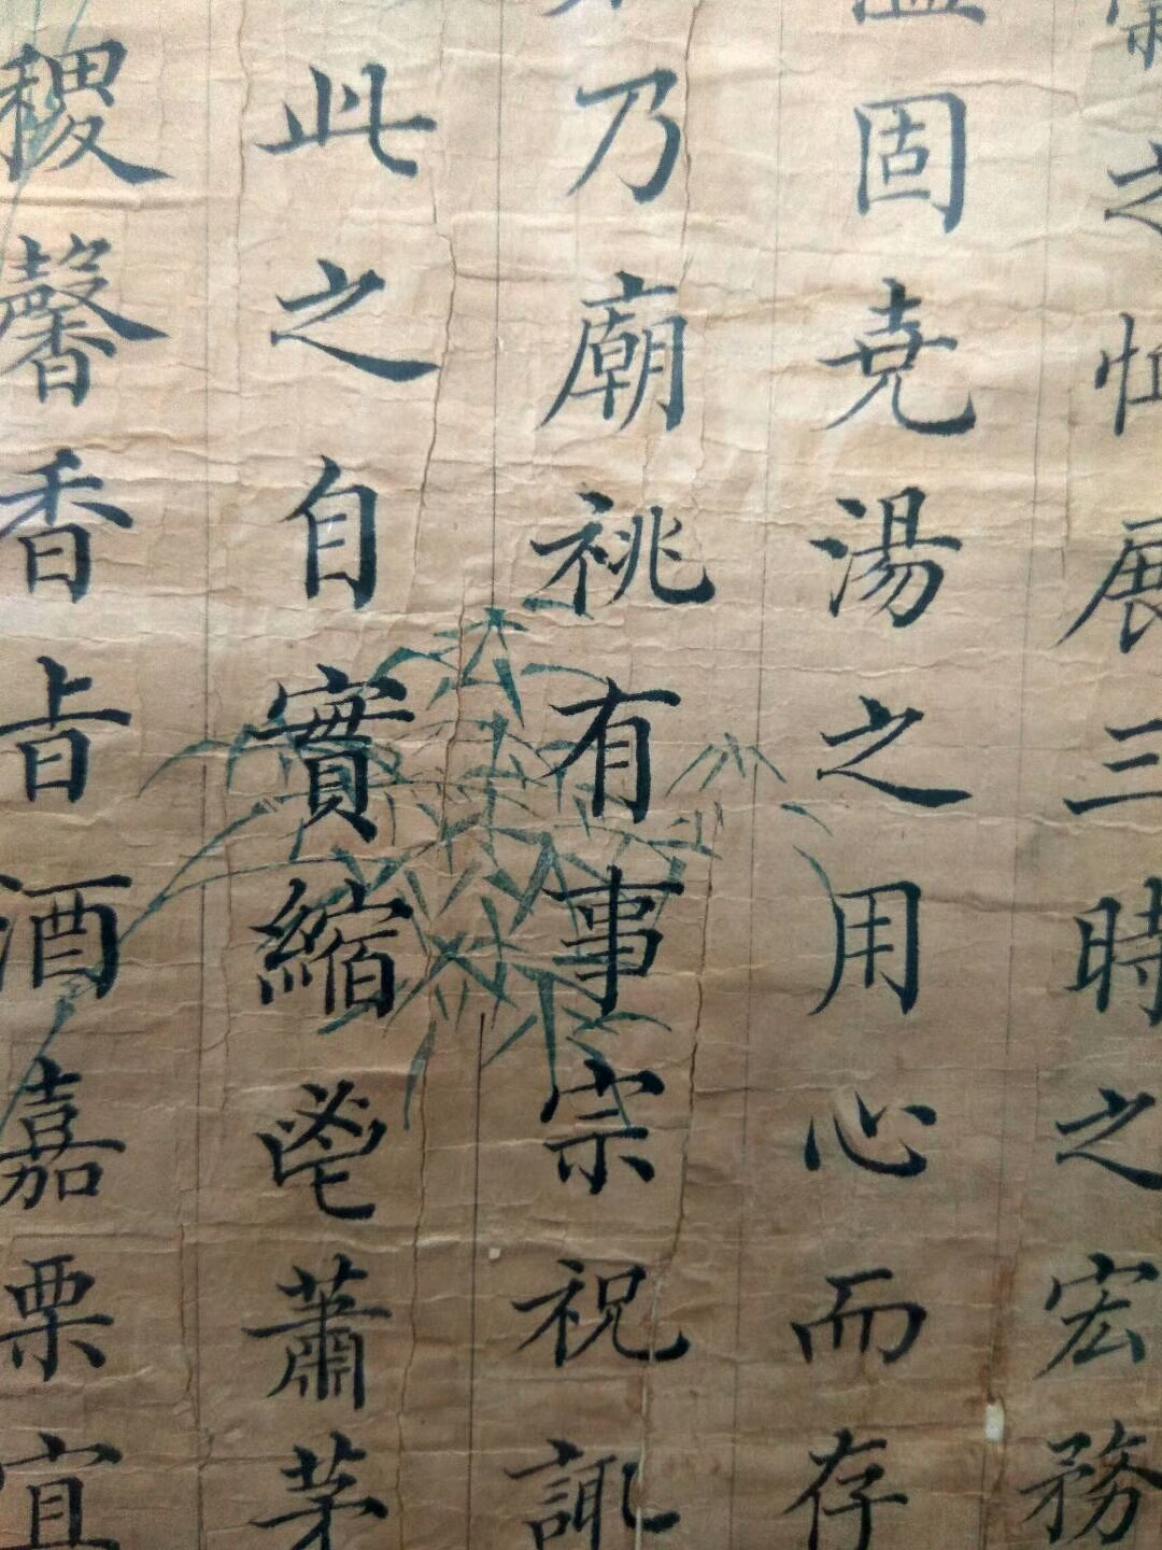 之恤展三時之宏務
固尭湯之用心而存
乃廟祧有事宗祝諏
此之自實縮鬯蕭茅
稷馨香旨酒嘉栗宜